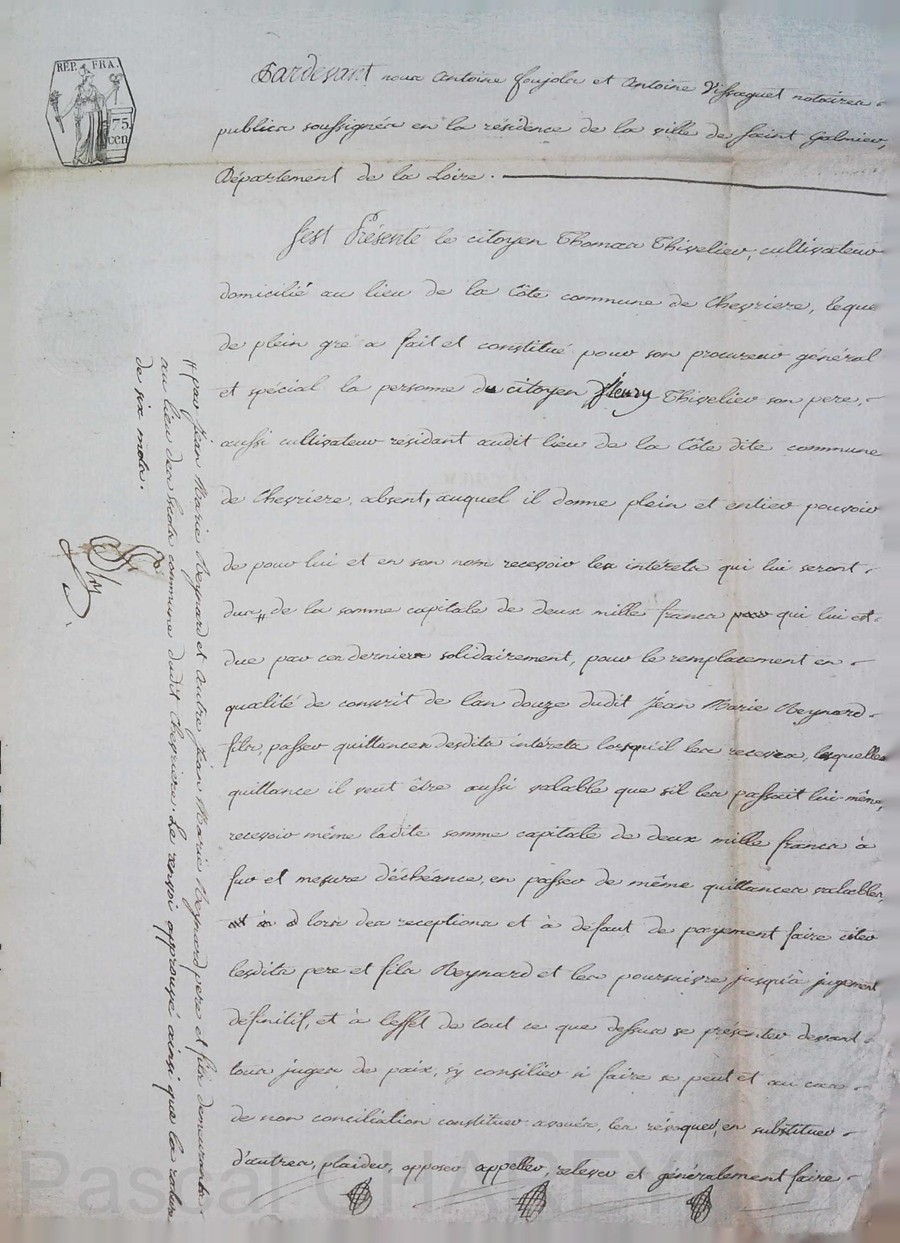 RÉP. FRA.
75.
cen.
Pardevant nous Antoine Foujols et Antoine Vissaguet notaires
publics soussignés en la résidence de la ville de Saint Galmier,
Département de la Loire.
S'est Présenté le citoyen Thomas Thivelier, cultivateur
domicilié au lieu de la Côte commune de Chevriere, leque
de plein gré a fait et constitué pour son procureur général
et spécial la personne du citoyen fleury Thivelier son pere,
aussi cultivateur résidant audit lieu de la Côte dite commune
de Chevriere, absent, auquel il donne plein et entier pouvoir
de pour lui et en son nom recevoir les intérets qui lui seront
dus # de la somme capitale de deux mille francs qui lui est
due par ces derniers solidairement, pour le remplacement en
qualité de conscrit de lan douze dudit Jean Marie Reynard
fils, passer quittances desdits intérets lorsqu'il les recevra, lesquelles
quittance il veut être aussi valable que s'il les passait lui-même,
recevoir même ladite somme capitale de deux mille francs à
fur et mesure d'échéance, en passer de même quittances valables,
lors des receptions et à défaut de payement faire citer
lesdits pere et fils Reynard et les poursuivre jusqu'à jugement
définitif, et à l'effet de tout ce que dessus se présenter devant
tous juges de paix, s'y consilier si faire se peut et au cas
de non conciliation constituer avoués, les révoquer, en substituer
d'autres, plaider, opposer appeller, relever et généralement faire
# par Jean Marie Reynard et autre Jean Marie Reynard pere et fils demeurants
au lieu des commune dudit Chevriere. Le renvoi approuvé ainsi que la rature
de six mots.
Pascal CHAREYRON